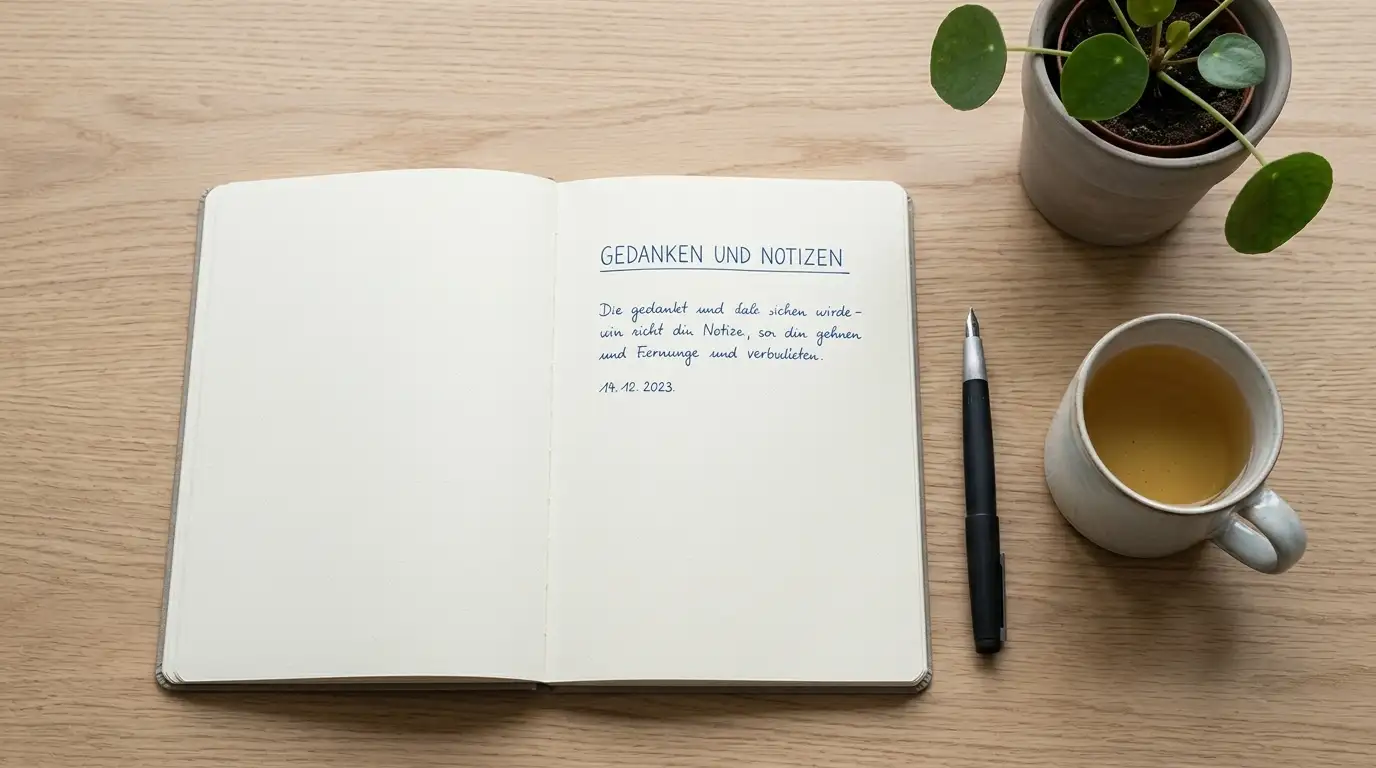 GEDANKEN UND NOTIZEN
Die gedanket und dale sichen wirde-
win richt din Notize, son din gehnen
und Fernunge und verbudieten.
14.12.2023.